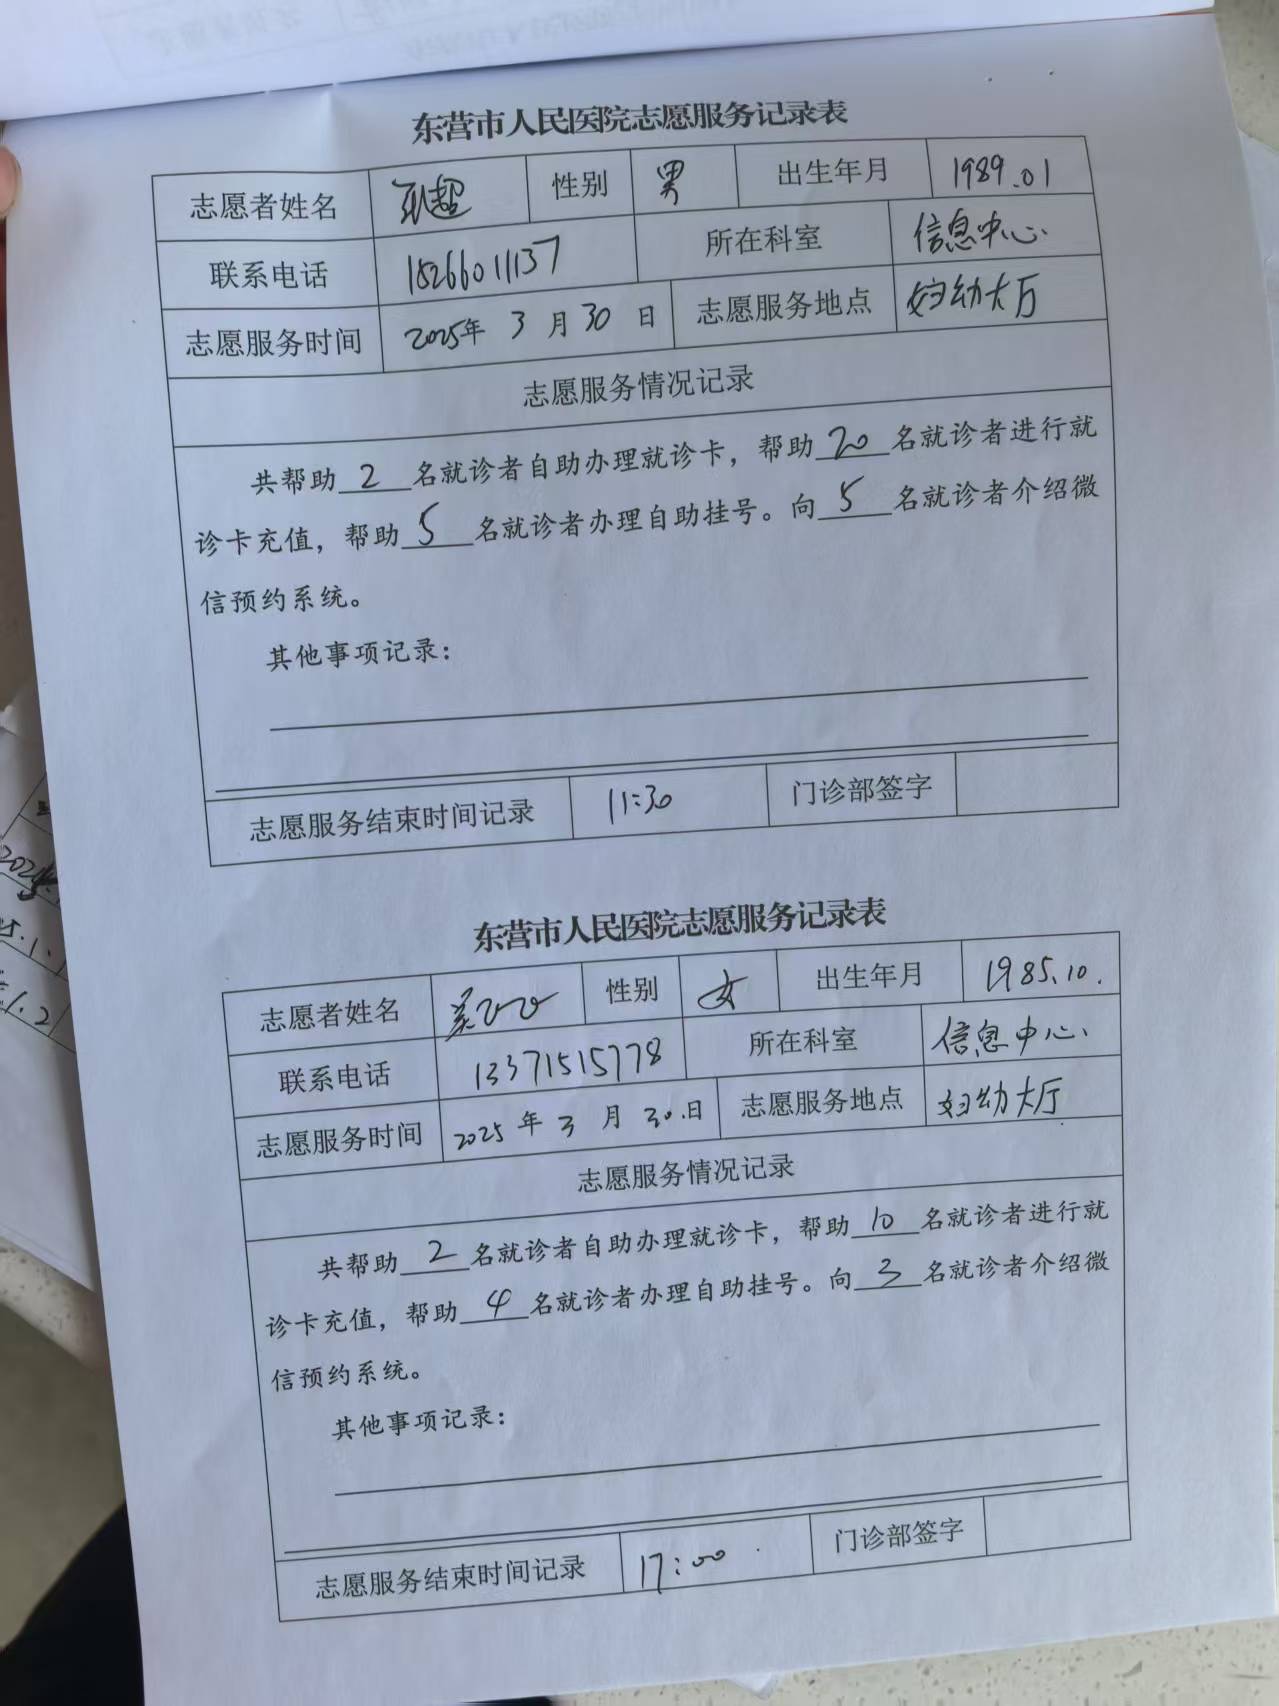 东营市人民医院志愿服务记录表
志愿者姓名 耿超 性别 男 出生年月 1989.01
联系电话 18266011137 所在科室 信息中心
志愿服务时间 2025年 3 月 30 日 志愿服务地点 妇幼大厅
志愿服务情况记录
共帮助 2 名就诊者自助办理就诊卡，帮助 20 名就诊者进行就
诊卡充值，帮助 5 名就诊者办理自助挂号。向 5 名就诊者介绍微
信预约系统。
其他事项记录：
志愿服务结束时间记录 11:30 门诊部签字
东营市人民医院志愿服务记录表
志愿者姓名 性别 女 出生年月 1985.10.
联系电话 13371515778 所在科室 信息中心
志愿服务时间 2025 年 3 月 30.日 志愿服务地点 妇幼大厅
志愿服务情况记录
共帮助 2 名就诊者自助办理就诊卡，帮助 10 名就诊者进行就
诊卡充值，帮助 4 名就诊者办理自助挂号。向 3 名就诊者介绍微
信预约系统。
其他事项记录：
志愿服务结束时间记录 17:00 门诊部签字